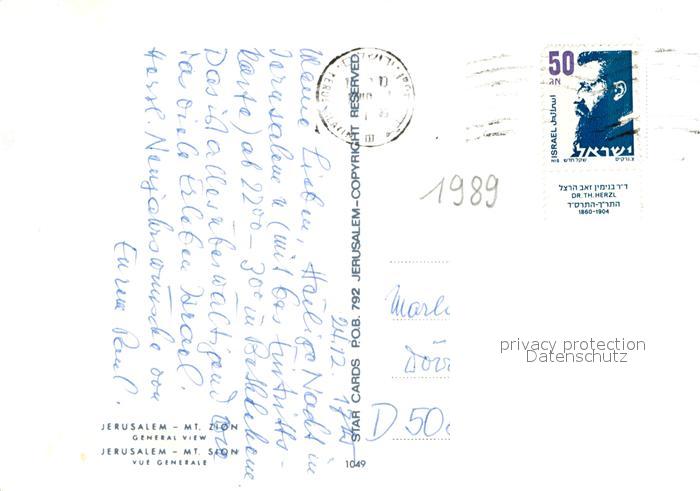 24.12. 17
Meine Lieben, Heilige Nacht in
Jerusalem (mit bes. Eintritts-
karte) ab 22°°-3°° in Bethlehem
Das ist alles überwältigend
so viele Erleben Israel.
Herzl. Neujahrswünsche von
Eurem Paul.
JERUSALEM – MT. ZION
GENERAL VIEW
JERUSALEM – MT. SION
VUE GENERALE
STAR CARDS P.O.B. 792 JERUSALEM–COPYRIGHT RESERVED
1049
1989
50
אג
ISRAEL
ישראל
שקל חדש
ד״ר בנימין זאב הרצל
DR. TH. HERZL
התר״ך-התרס״ד
1860-1904
Marl
D 50
privacy protection
Datenschutz